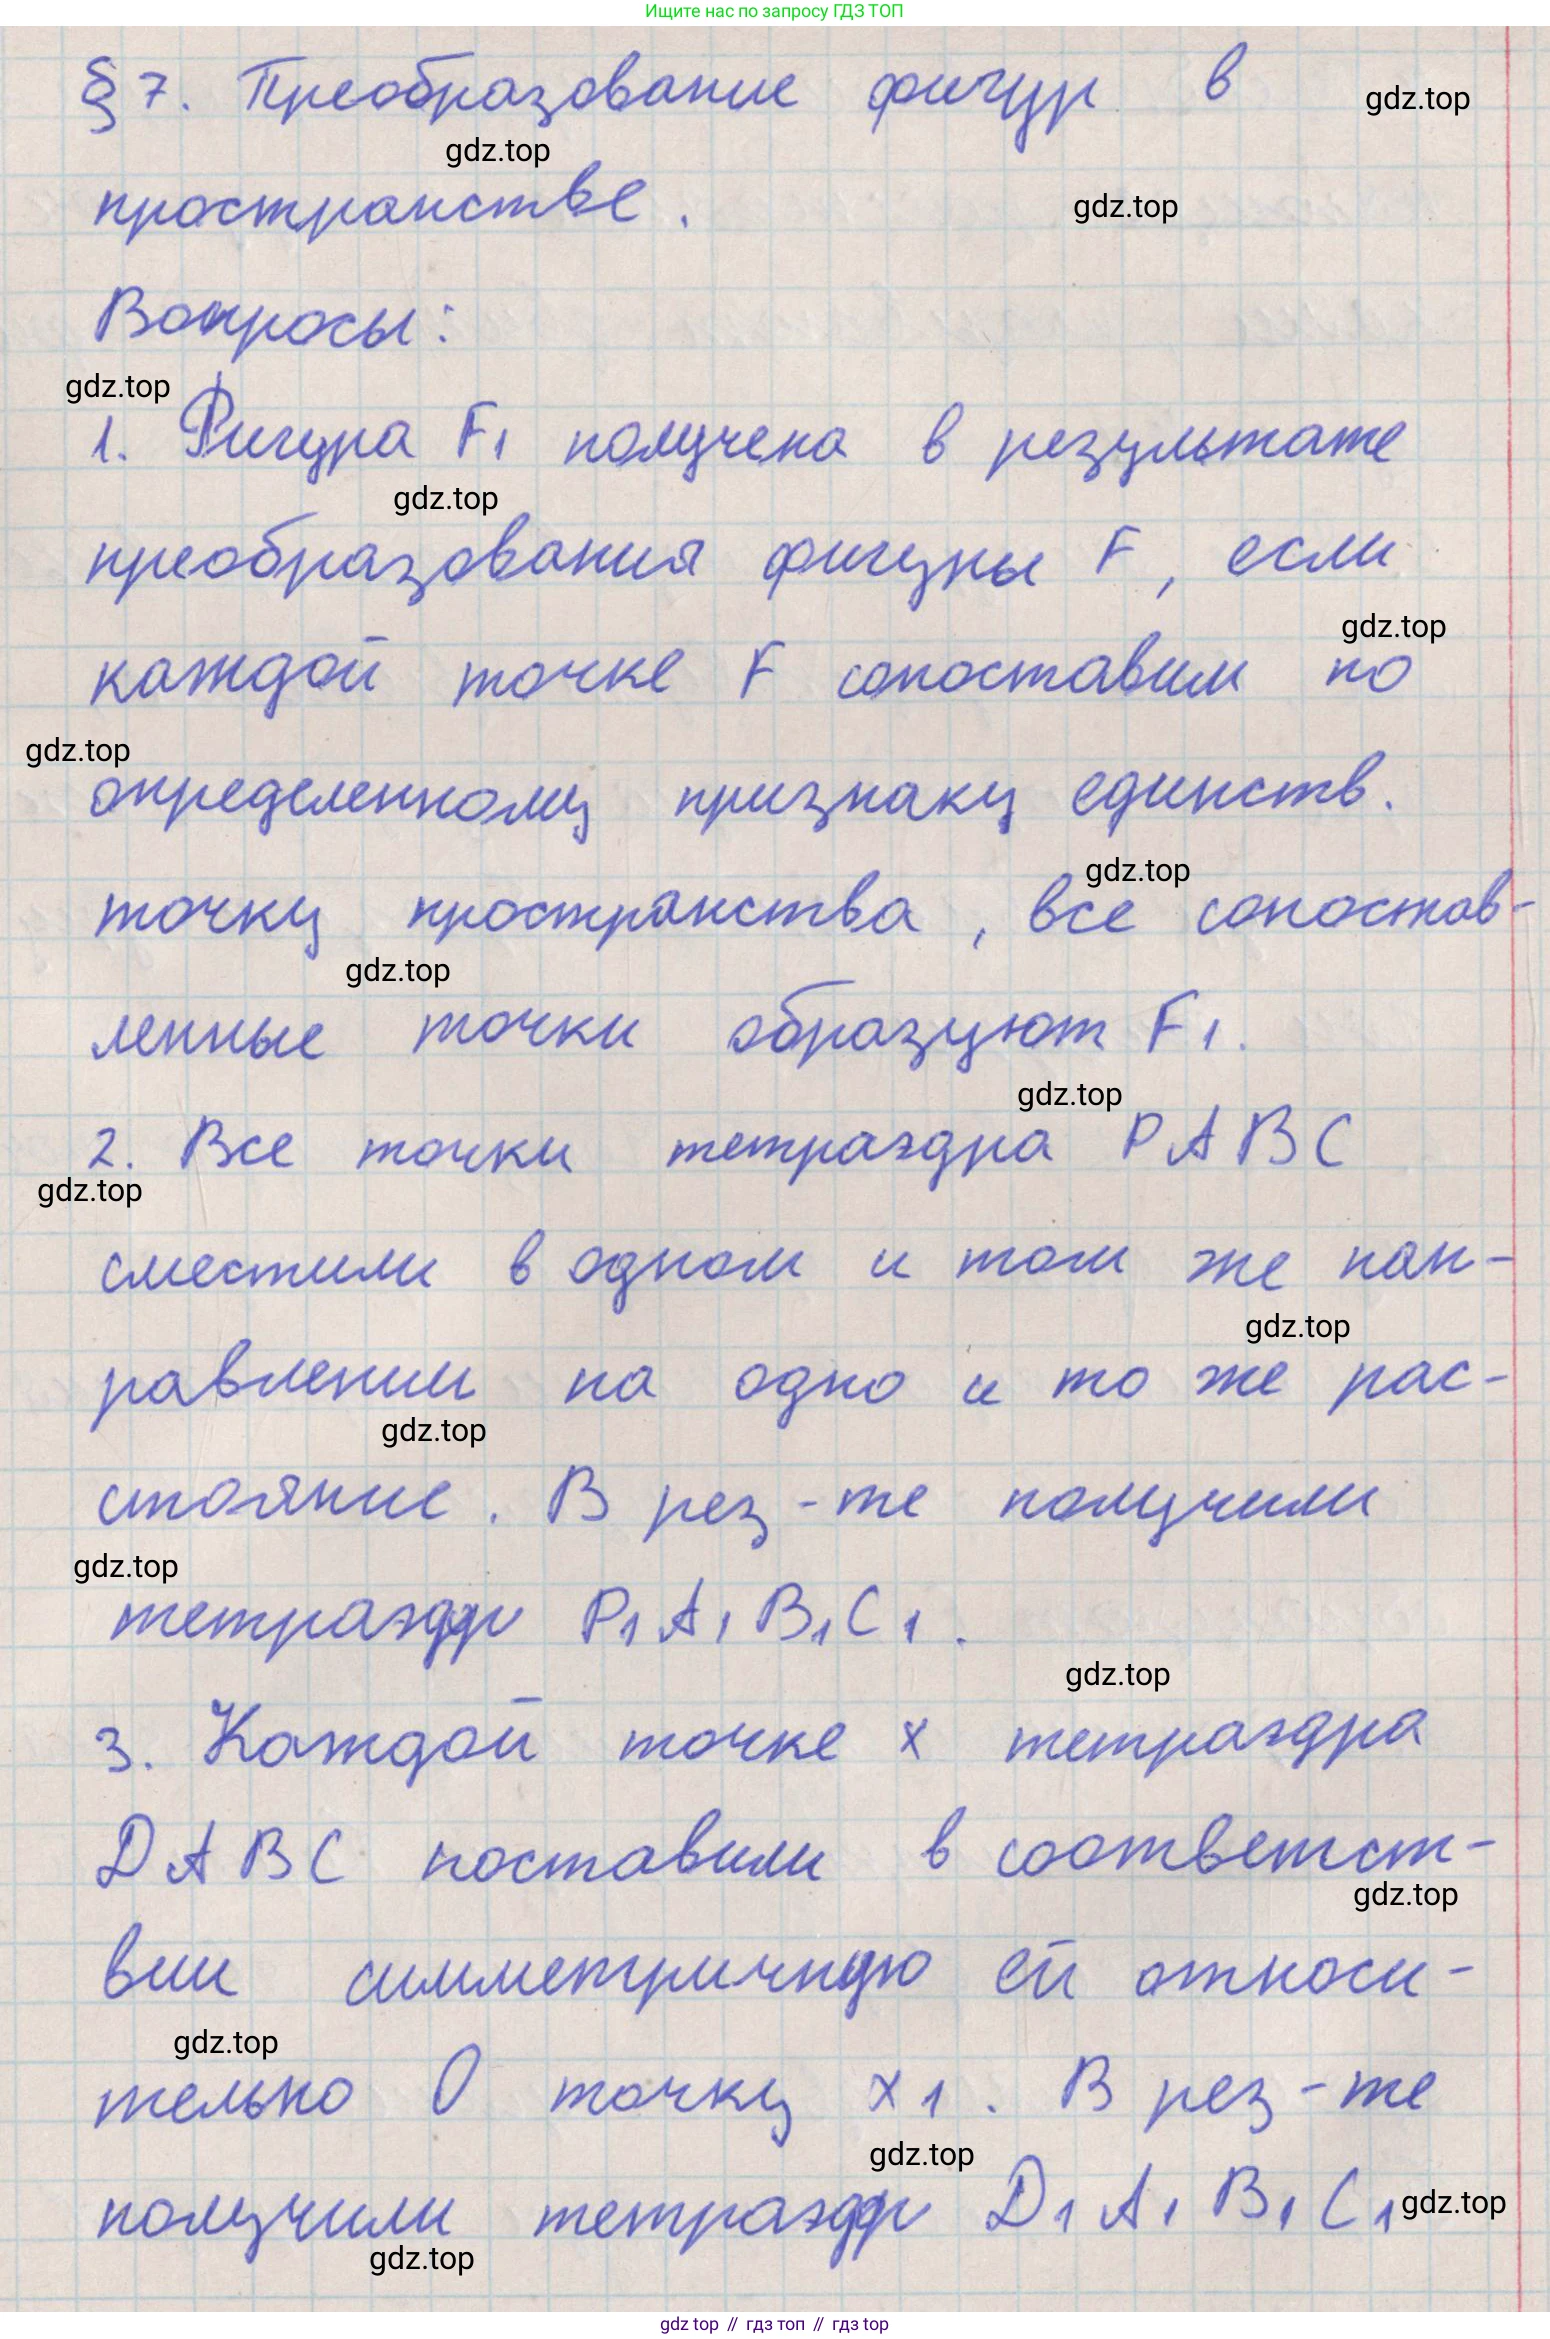 Ищите нас по запросу ГДЗ ТОП
§ 7. Преобразование фигур в
gdz.top
gdz.top
пространстве.
gdz.top
Вопросы:
gdz.top
1. Фигура F₁ получена в результате
gdz.top
преобразования фигуры F, если
gdz.top
каждой точке F сопоставим по
gdz.top
определенному признаку единств.
gdz.top
точку пространства, все сопостав-
gdz.top
ленные точки образуют F₁.
gdz.top
2. Все точки тетраэдра PABC
gdz.top
сместили в одном и том же нап-
gdz.top
равлении на одно и то же рас-
gdz.top
стояние. В рез-те получили
gdz.top
тетраэдр P₁A₁B₁C₁.
gdz.top
3. Каждой точке x тетраэдра
DABC поставили в соответст-
gdz.top
вии симметричную ей относи-
gdz.top
тельно O точку x₁. В рез-те
gdz.top
получили тетраэдр D₁A₁B₁C₁
gdz.top
gdz.top
gdz top // гдз топ // гдз top